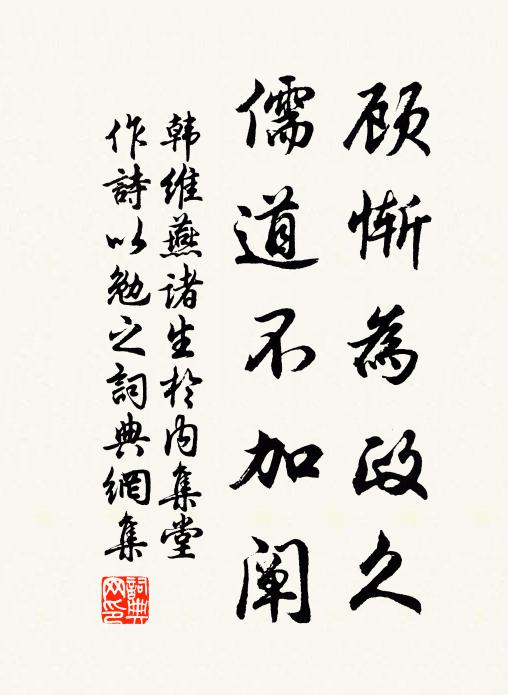 顾惭為政久
儒道不加阐
韩维燕诸生於内集堂
作詩以勉之詞典網集
詞典